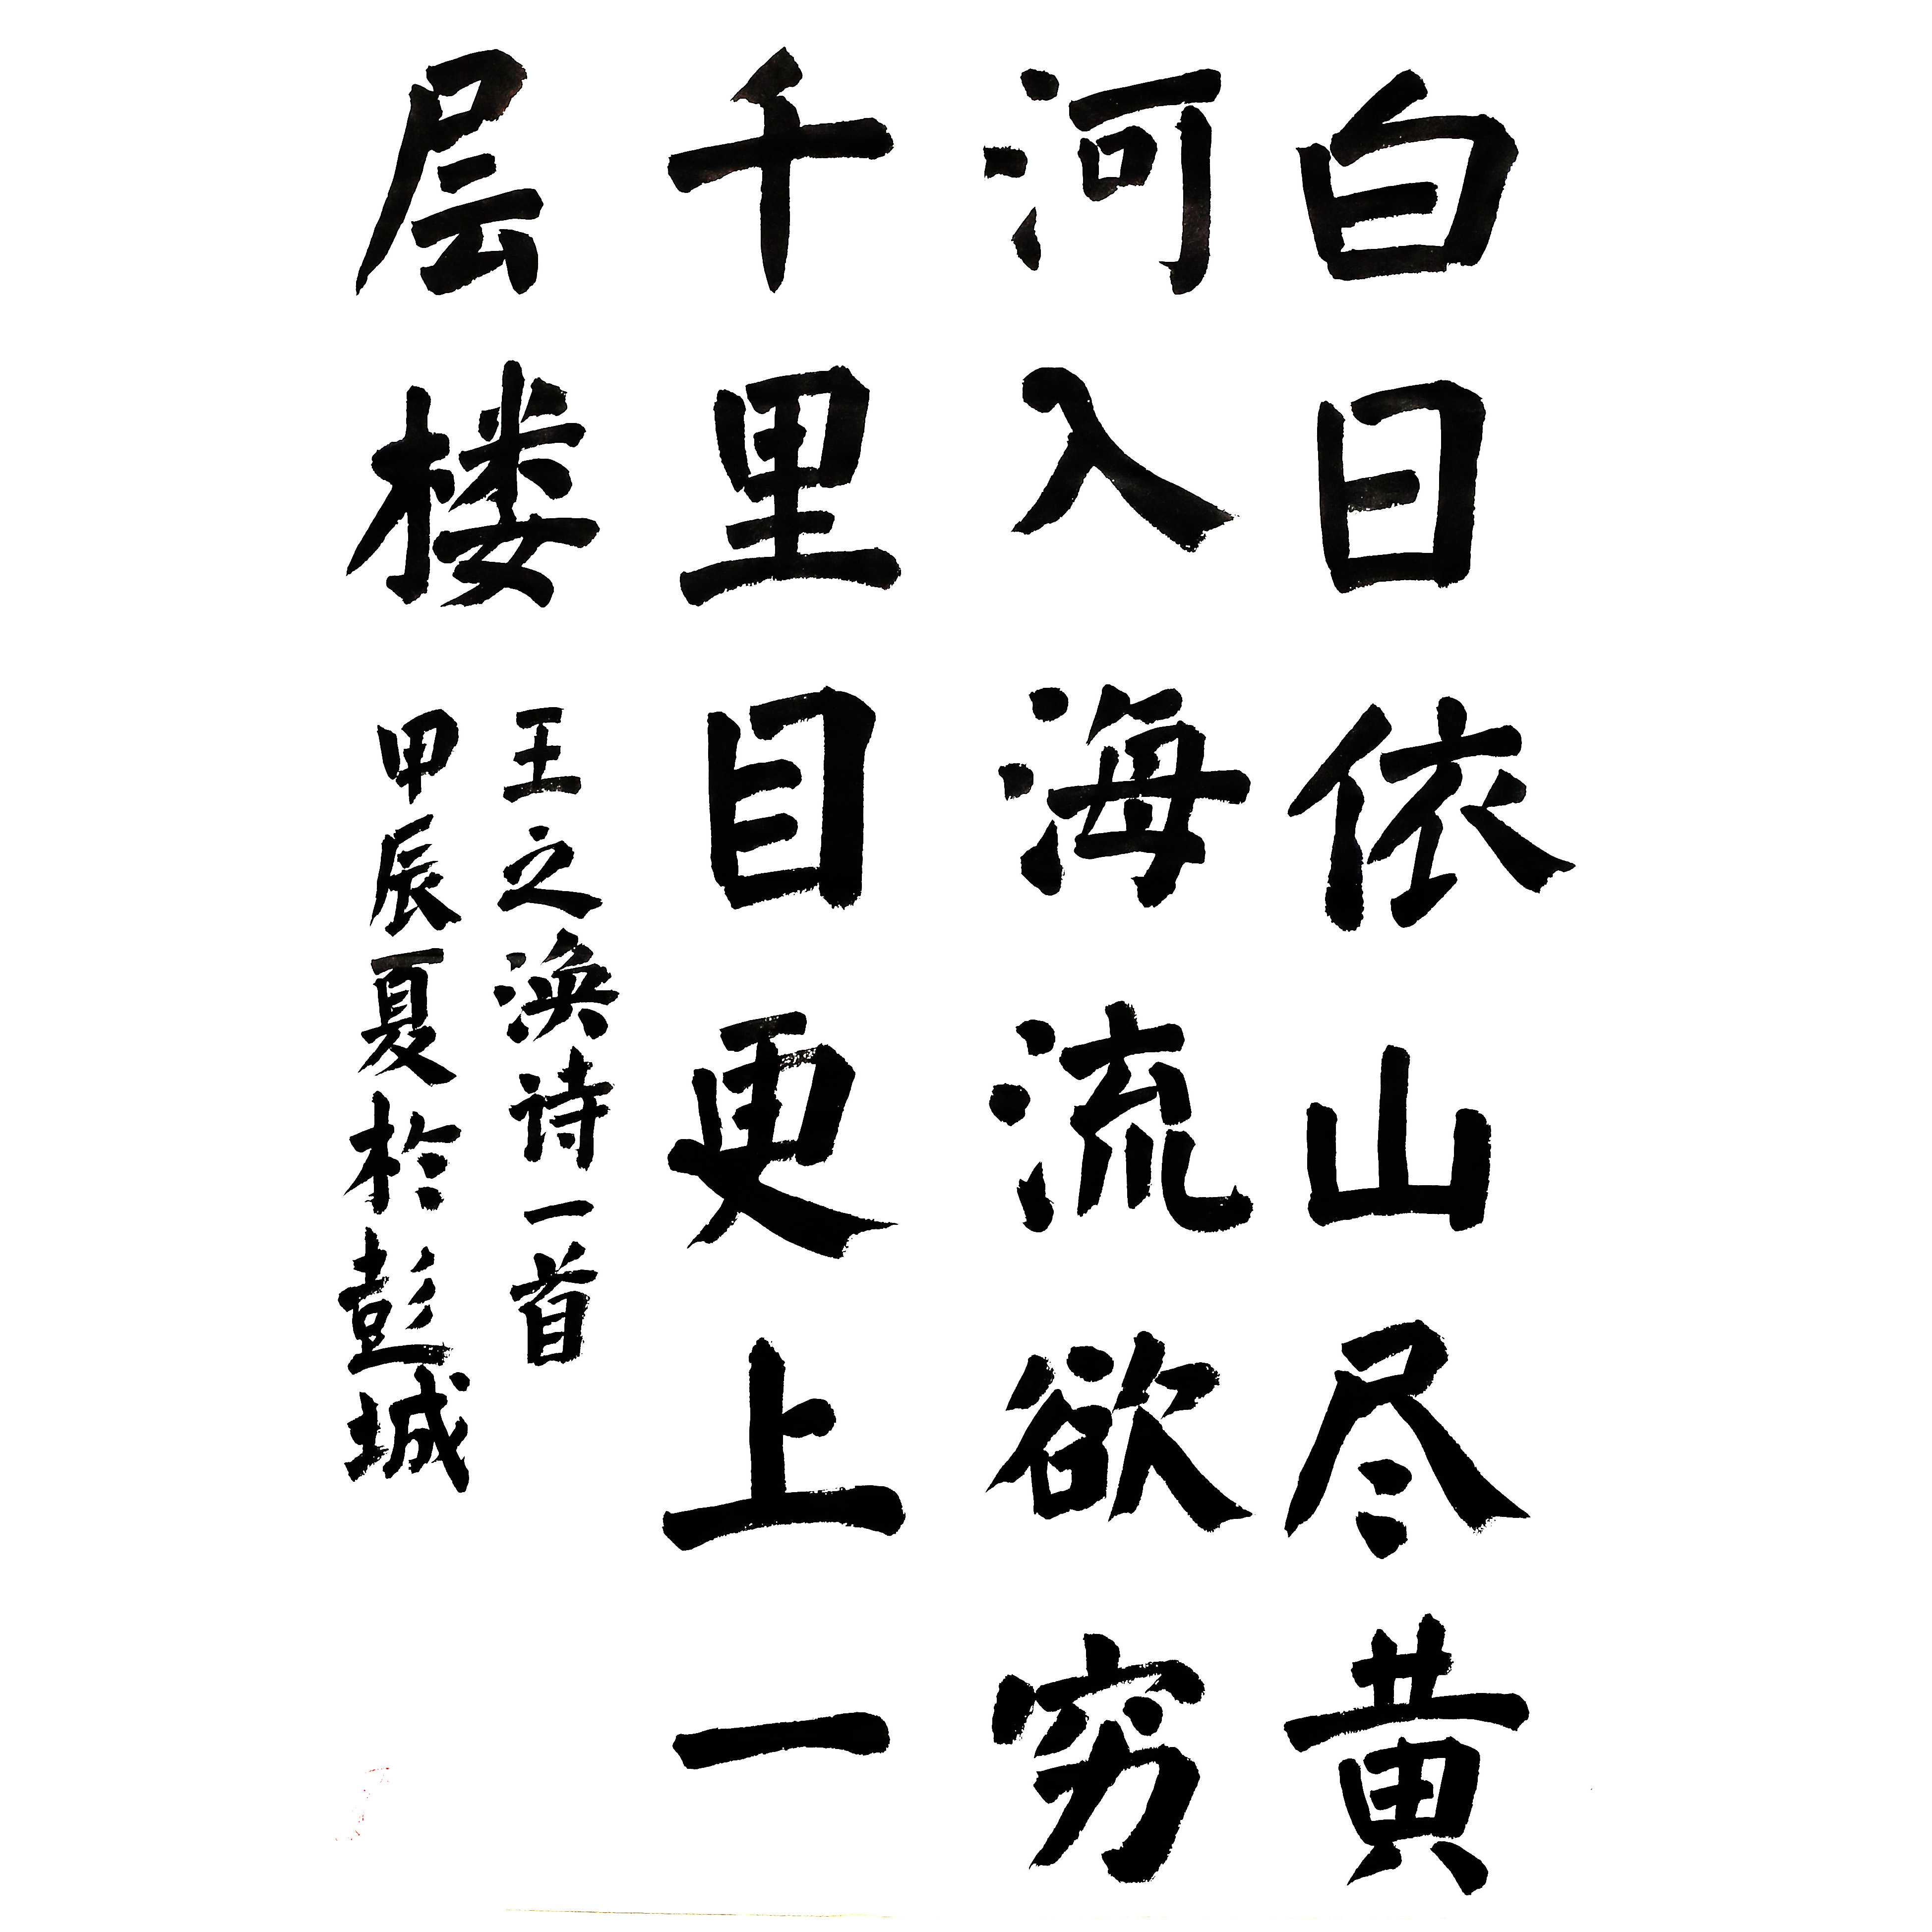 白日依山尽黄
河入海流欲穷
千里目更上一
层楼
王之涣诗一首
甲辰夏於彭城